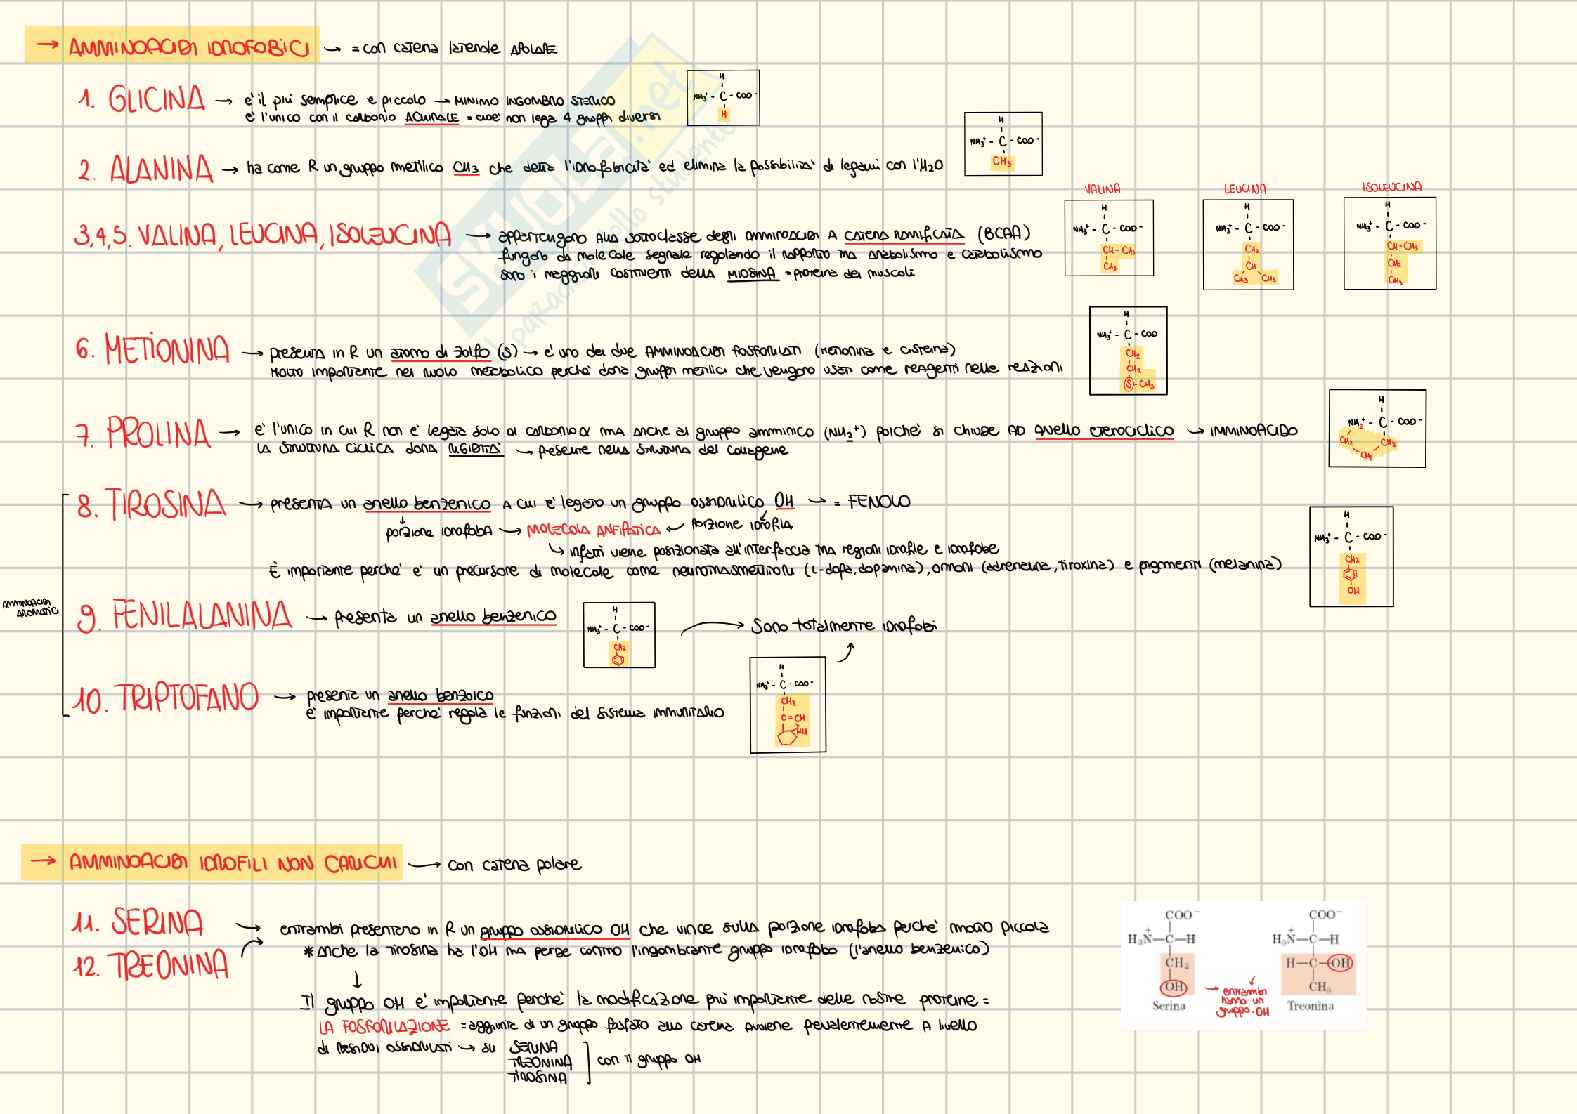 → AMMINOACIDI IDROFOBICI → = con catena laterale APOLARE
1. GLICINA → è il più semplice e piccolo → MINIMO INGOMBRO STERICO
è l'unico con il carbonio ACHIRALE = cioè non lega 4 gruppi diversi
H
NH₃⁺ - C - COO⁻
H
2. ALANINA → ha come R un gruppo metilico CH₃ che detta l'idrofobicità ed elimina la possibilità di legami con l'H₂O
H
NH₃⁺ - C - COO⁻
CH₃
3,4,5. VALINA, LEUCINA, ISOLEUCINA → appartengono alla sottoclasse degli amminoacidi A CATENA RAMIFICATA (BCAA)
fungono da molecole segnale regolando il rapporto tra anabolismo e catabolismo
sono i maggiori costituenti della MIOSINA = proteina dei muscoli
VALINA
H
NH₃⁺ - C - COO⁻
CH - CH₃
CH₃
LEUCINA
H
NH₃⁺ - C - COO⁻
CH₂
CH
CH₃ CH₃
ISOLEUCINA
H
NH₃⁺ - C - COO⁻
CH - CH₃
CH₂
CH₃
6. METIONINA → presenta in R un atomo di zolfo (S) → è uno dei due AMMINOACIDI FOSFORILATI (metionina e cisteina)
molto importante nel ruolo metabolico perché dona gruppi metilici che vengono usati come reagenti nelle reazioni
H
NH₃⁺ - C - COO
CH₂
CH₂
S - CH₃
7. PROLINA → è l'unico in cui R non è legata solo al carbonio α ma anche al gruppo amminico (NH₂⁺) poiché si chiude AD anello eterociclico → IMMINOACIDO
LA struttura ciclica dona RIGIDITÀ → presente nella struttura del collagene
H
NH₂⁺ - C - COO⁻
CH₂ CH₂
CH₂
AMMINOACIDI AROMATICI
8. TIROSINA → presenta un anello benzenico A cui è legato un gruppo ossidrilico OH → = FENOLO
porzione idrofoba → MOLECOLA ANFIPATICA ← porzione idrofila
↳ infatti viene posizionata all'interfaccia tra regioni idrofile e idrofobe
È importante perché è un precursore di molecole come neurotrasmettitori (L-dopa, dopamina), ormoni (adrenalina, tiroxina) e pigmenti (melanina)
H
NH₃⁺ - C - COO⁻
CH₂
OH
9. FENILALANINA → presenta un anello benzenico
H
NH₃⁺ - C - COO⁻
CH₂
→ Sono totalmente idrofobi
10. TRIPTOFANO → presente un anello benzoico
è importante perché regola le funzioni del sistema immunitario
H
NH₃⁺ - C - COO⁻
CH₂
C = CH
NH
→ AMMINOACIDI IDROFILI NON CARICHI → con catena polare
11. SERINA → entrambi presentano in R un gruppo ossidrilico OH che vince sulla porzione idrofoba perché molto piccola
* Anche la tirosina ha l'OH ma perde contro l'ingombrante gruppo idrofobo (l'anello benzenico)
12. TREONINA
↓
Il gruppo OH è importante perché la modificazione più importante delle nostre proteine =
LA FOSFORILAZIONE = aggiunta di un gruppo fosfato alla catena avviene prevalentemente A livello
di residui ossidrilati → su SERINA
TREONINA
TIROSINA
con il gruppo OH
COO⁻
H₃N⁺—C—H
CH₂
OH
Serina
→ entrambi hanno un gruppo -OH
COO⁻
H₃N⁺—C—H
H—C—OH
CH₃
Treonina
skuola.net
il paradiso dello studente